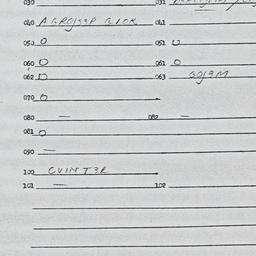 030 031
040 AGROJSSP BLOK 041
050 0 051 0
060 0 061 0
062 0 063 GOJSM
070 0
080 — 082 —
081 0
090 —
100 CVINT3R
101 — 102